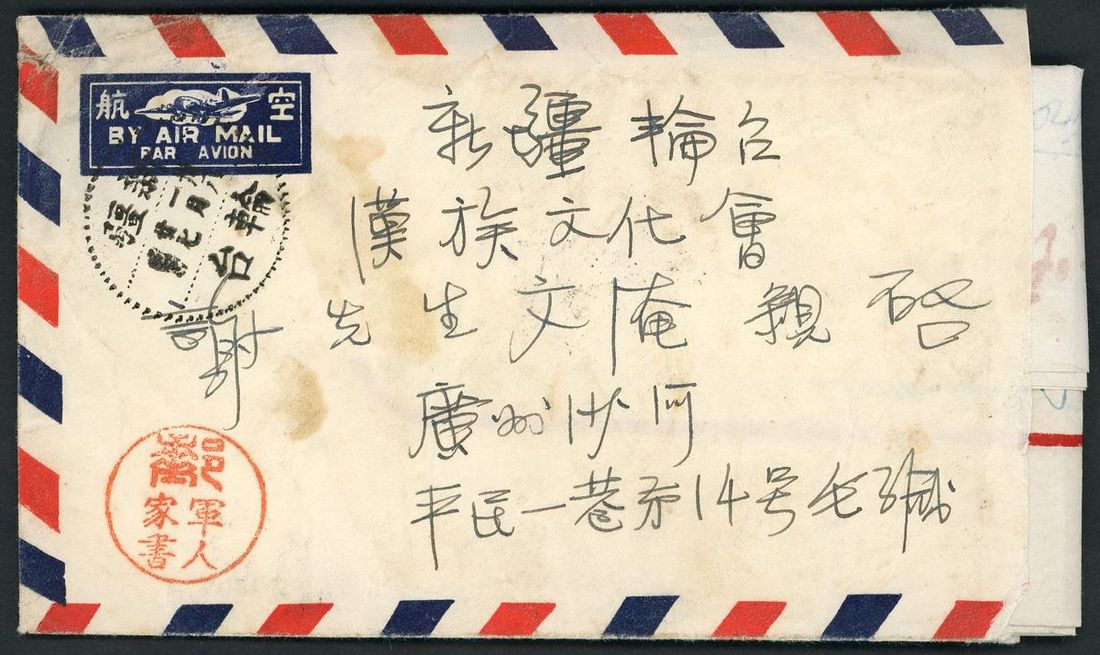 航空
BY AIR MAIL
PAR AVION
新疆輪台
漢族文化會
謝先生文庵親啓
廣州沙河
平民一巷第14号毛緘
輪台
新疆
軍人
家書